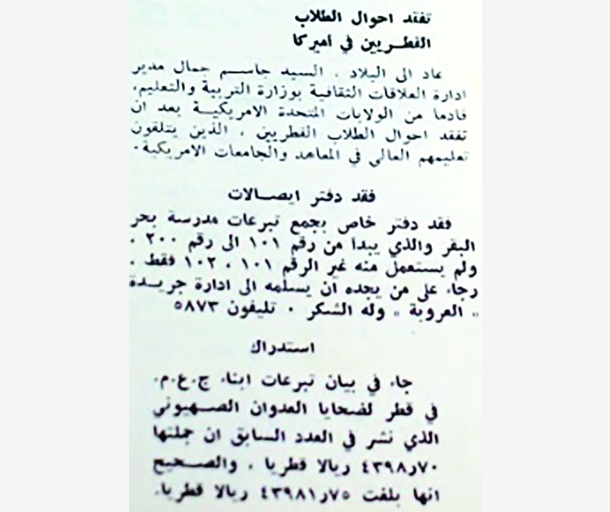 تفقد احوال الطلاب
القطريين في اميركا
عاد الى البلاد ، السيد جاسم جمال مدير
ادارة العلاقات الثقافية بوزارة التربية والتعليم،
قادما من الولايات المتحدة الامريكية بعد ان
تفقد احوال الطلاب القطريين ، الذين يتلقون
تعليمهم العالي في المعاهد والجامعات الامريكية.
فقد دفتر ايصالات
فقد دفتر خاص بجمع تبرعات مدرسة بحر
البقر والذي يبدأ من رقم ١٠١ الى رقم ٢٠٠ .
ولم يستعمل منه غير الرقم ١٠١ ، ١٠٢ فقط .
رجاء على من يجده ان يسلمه الى ادارة جريدة
« العروبة » وله الشكر . تليفون ٥٨٧٣
استدراك
جاء في بيان تبرعات ابناء ج.ع.م.
في قطر لضحايا العدوان الصهيوني
الذي نشر في العدد السابق ان جملتها
٧٠ر٤٣٩٨ ريالا قطريا . والصحيح
انها بلغت ٧٥ر٤٣٩٨١ ريالا قطريا.